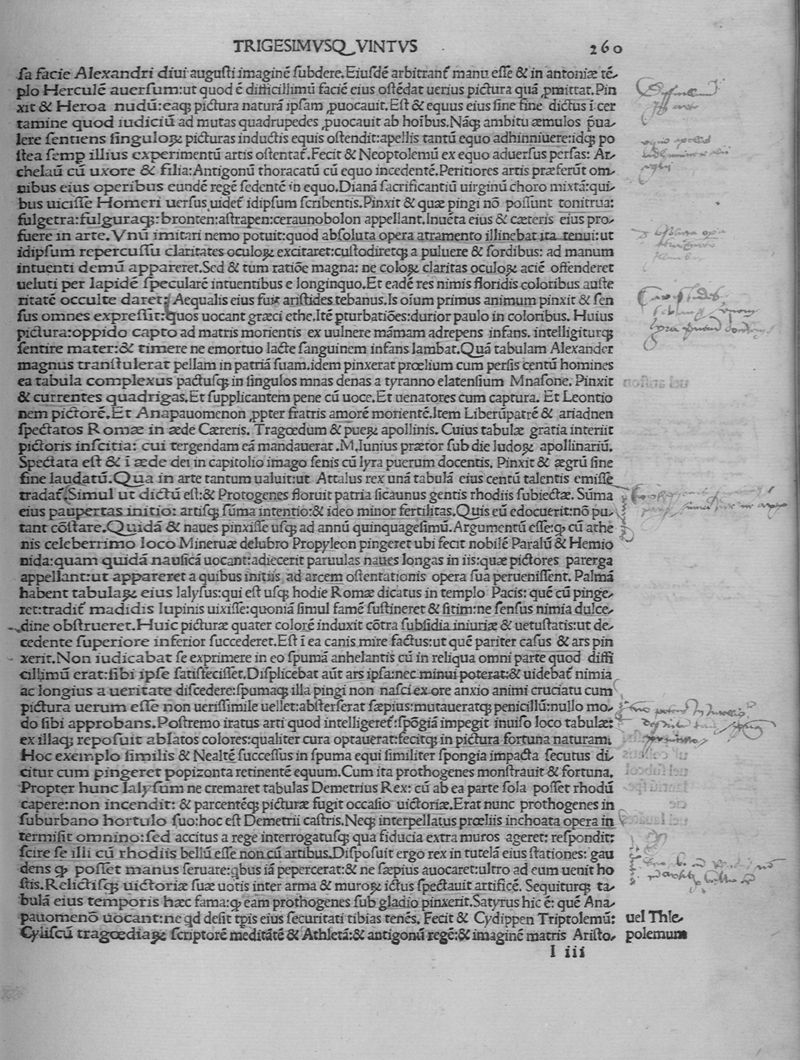 TRIGESIMVSQVINTVS 260
sa facie Alexandri diui augusti imaginē subdere. Eiusdē arbitrant̄ manu esse & in antoniæ tē-
plo Herculē auersum: ut quod ē difficillimū faciē eius ostēdat uerius pictura quā ꝓmittat. Pin
xit & Heroa nudū: eaq; pictura naturā ipsam ꝓuocauit. Est & equus eius siue fine dictus ī cer
tamine quod iudiciū ad mutas quadrupedes ꝓuocauit ab hoībus. Nāq; ambitu æmulos p̄ua-
lere sentiens singuloꝝ picturas inductis equis ostendit: apellis tantū equo adhinniuere: idq; po
stea semp illius experimentū artis ostentat̄. Fecit & Neoptolemū ex equo aduersus persas: Ar-
chelaū cū uxore & filia: Antigonū thoracatū cū equo incedentē. Peritiores artis præferūt om-
nibus eius operibus eundē regē sedentē in equo. Dianā sacrificantiū uirginū choro mixtā: qui-
bus uicisse Homeri uersus uidet̄ idipsum scribentis. Pinxit & quæ pingi nō possunt tonitrua:
fulgetra: fulguraq;: bronten: astrapen: ceraunobolon appellant. Inuēta eius & cæteris eius pro-
fuere in arte. Vnū imitari nemo potuit: quod absoluta opera atramento illinebat ita tenui: ut
idipsum repercussu claritates oculoꝝ excitaret: custodiretq; a puluere & sordibus: ad manum
intuenti demū appareret. Sed & tum ratiōe magna: ne coloꝝ claritas oculoꝝ aciē offenderet
ueluti per lapidē specularē intuentibus e longinquo. Et eadē res nimis floridis coloribus auste
ritatē occulte daret. Aequalis eius fuit aristides tebanus. Is oīum primus animum pinxit & sen
sus omnes expressit: quos uocant græci ethe. Itē pturbatiōes: durior paulo in coloribus. Huius
pictura: oppido capto ad matris morientis ex uulnere māmam adrepens infans. intelligiturq;
sentire mater: & timere ne emortuo lacte sanguinem infans lambat. Quā tabulam Alexander
magnus transtulerat pellam in patriā suam. idem pinxerat prœlium cum persis centū homines
ea tabula complexus pactusq; in singulos mnas denas a tyranno elatensium Mnasone. Pinxit
& currentes quadrigas. Et supplicantem pene cū uoce. Et uenatores cum captura. Et Leontio
nem pictorē. Et Anapauomenon ꝓpter fratris amorē morientē. Item Liberūpatrē & ariadnen
spectatos Romæ in æde Cæreris. Tragœdum & pueꝝ apollinis. Cuius tabulæ gratia interiit
pictoris inscitia: cui tergendam eā mandauerat .M. Iunius prætor sub die ludoꝝ apollinariū.
Spectata est & ī æde dei in capitolio imago senis cū lyra puerum docentis. Pinxit & ægrū sine
fine laudatū. Qua in arte tantum ualuit: ut Attalus rex unā tabulā eius centū talentis emisse
tradat̄. Simul ut dictū est: & Protogenes floruit patria sicaunus gentis rhodiis subiectæ. Sūma
eius paupertas initio: artisq; sūma intentio: & ideo minor fertilitas. Quis eū edocuerit: nō pu-
tant cōstare. Quidā & naues pinxisse usq; ad annū quinquagesimū. Argumentū esse: q̇ cū athe
nis celeberrimo loco Mineruæ delubro Propyleon pingeret ubi fecit nobilē Paralū & Hemio
nida: quam quidā nausicā uocant: adiecerit paruulas naues longas in iis: quæ pictores parerga
appellant: ut appareret a quibus initiis ad arcem ostentationis opera sua peruenissent. Palmā
habent tabulaꝝ eius Ialysus: qui est usq; hodie Romæ dicatus in templo Pacis: quē cū pinge-
ret: tradit̄ madidis lupinis uixisse: quoniā simul famē sustineret & sitim: ne sensus nimia dulce-
dine obstrueret. Huic picturæ quater colorē induxit cōtra subsidia iniuriæ & uetustatis: ut de-
cedente superiore inferior succederet. Est ī ea canis mire factus: ut quē pariter casus & ars pin
xerit. Non iudicabat se exprimere in eo spumā anhelantis cū in reliqua omni parte quod diffi
cillimū erat: sibi ipse satisfecisset. Displicebat aūt ars ipsa: nec minui poterat: & uidebat̄ nimia
ac longius a ueritate discedere: spumaq; illa pingi non nasci ex ore anxio animi cruciatu cum
pictura uerum esse non uerisimile uellet: absterserat sæpius: mutaueratq; penicillū: nullo mo-
do sibi approbans. Postremo iratus arti quod intelligeret̄: spōgiā impegit inuiso loco tabulæ:
ex illaq; reposuit ablatos colores: qualiter cura optauerat: fecitq; in pictura fortuna naturam.
Hoc exemplo similis & Nealtē successus in spuma equi similiter spongia impacta secutus di-
citur cum pingeret popizonta retinentē equum. Cum ita prothogenes monstrauit & fortuna.
Propter hunc Ialysum ne cremaret tabulas Demetrius Rex: cū ab ea parte sola posset rhodū
capere: non incendit: & parcentēq; picturæ fugit occasio uictoriæ. Erat nunc prothogenes in
suburbano hortulo suo: hoc est Demetrii castris. Neq; interpellatus prœliis inchoata opera in
termisit omnino: sed accitus a rege interrogatusq; qua fiducia extra muros ageret: respondit:
scire se illi cū rhodiis bellū esse non cū artibus. Disposuit ergo rex in tutelā eius stationes: gau
dens q̇ posset manus seruare: qbus iā pepercerat: & ne sæpius auocaret: ultro ad eum uenit ho
stis. Relictisq; uictoriæ suæ uotis inter arma & muroꝝ ictus spectauit artificē. Sequiturq; ta-
bulā eius temporis hæc fama: q̇ eam prothogenes sub gladio pinxerit. Satyrus hic ē: quē Ana-
pauomenō uocant: ne qd desit tp̄is eius securitati tibias tenēs. Fecit & Cydippen Triptolemū: uel Thle-
Cyliscū tragœdiaꝝ scriptorē meditātē & Athletā: & antigonū regē: & imaginē matris Aristo- polemum
I iii